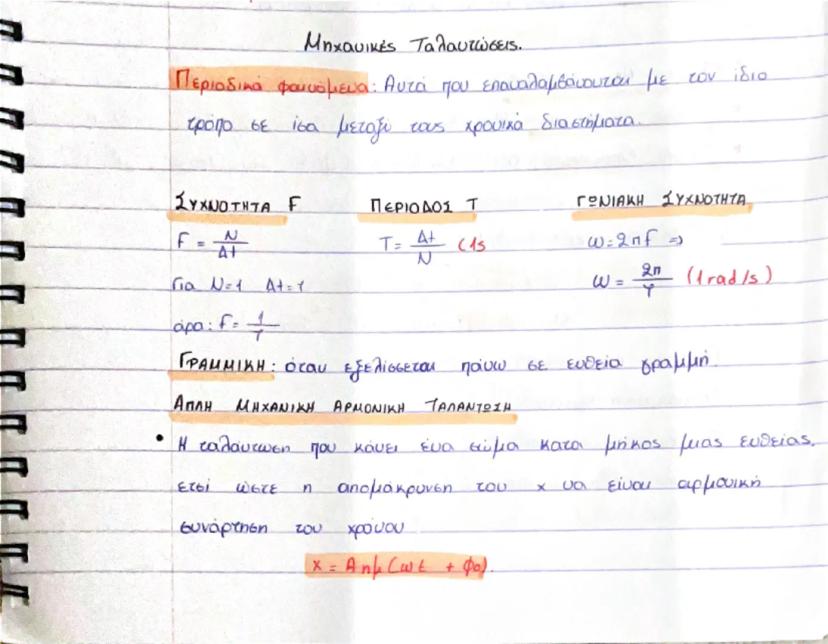 Μηχανικές Ταλαντώσεις.
Περιοδικά φαινόμενα: Αυτά που επαναλαμβάνονται με τον ίδιο
τρόπο σε ίσα μεταξύ τους χρονικά διαστήματα.
ΣΥΧΝΟΤΗΤΑ F ΠΕΡΙΟΔΟΣ Τ ΓΩΝΙΑΚΗ ΣΥΧΝΟΤΗΤΑ
F = N/Δt T = Δt/N (1s ω = 2πF =>
Για N=1 Δt=T ω = 2π/T (1 rad/s)
άρα: F = 1/T
ΓΡΑΜΜΙΚΗ: όταν εξελίσσεται πάνω σε ευθεία γραμμή.
ΑΠΛΗ ΜΗΧΑΝΙΚΗ ΑΡΜΟΝΙΚΗ ΤΑΛΑΝΤΩΣΗ
• Η ταλάντωση που κάνει ένα σώμα κατα μήκος μιας ευθείας,
ετσί ώστε η απομάκρυνση του x να είναι αρμονική
συνάρτηση του χρόνου
x = Α ημ (ωt + φο).